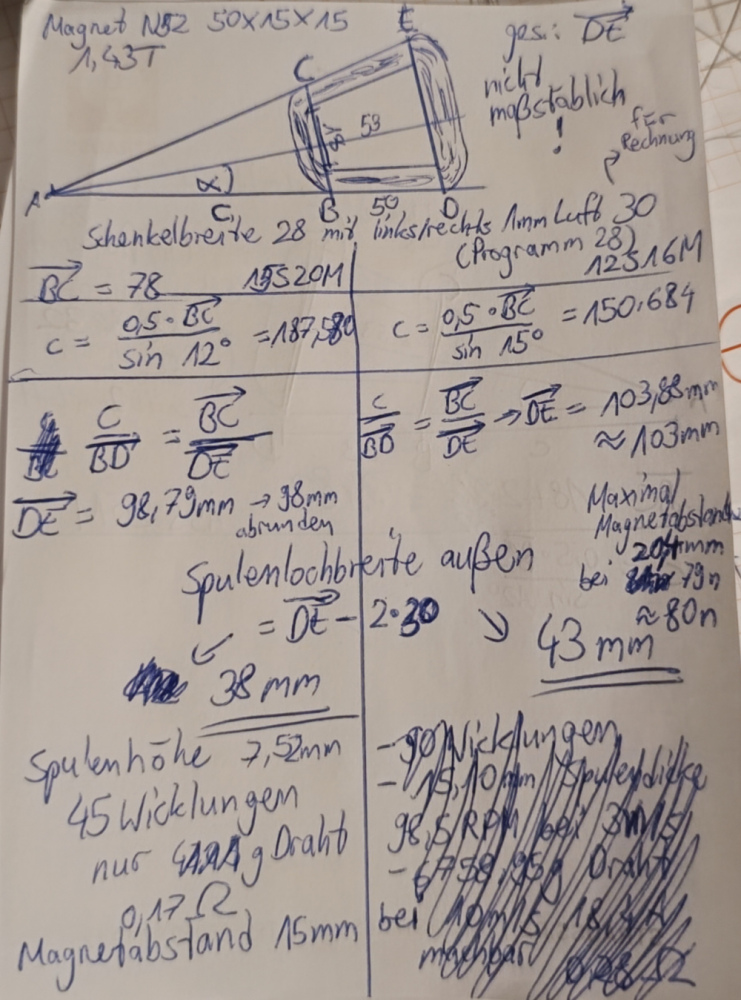 Magnet N52 50x15x15
1,43T
ges.: DE
nicht
maßstäblich
!
für
Rechnung
E
C
18
59
A
α
C
B
50
D
Schenkelbreite 28 mit links/rechts 1mm Luft 30
(Programm 28)
BC = 78 15S20M
12S16M
c = 0,5 · BC / sin 12° = 187,580
c = 0,5 · BC / sin 15° = 150,684
C / BD = BC / DE
DE = 98,79mm → 98mm
abrunden
C / BD = BC / DE → DE = 103,88mm
≈ 103mm
Maximal
Magnetabstand
20,4mm
bei 79n
≈ 80n
Spulenlochbreite außen
= DE - 2·30
38 mm
43 mm
Spulenhöhe 7,52mm
45 Wicklungen
nur g Draht
0,17 Ω
Magnetabstand 15mm
- 90 Wicklungen
- 15,10mm Spulendicke
98,5 RPM bei 3m/s
- 6758,95g Draht
bei 10m/s 18,4A
machbar